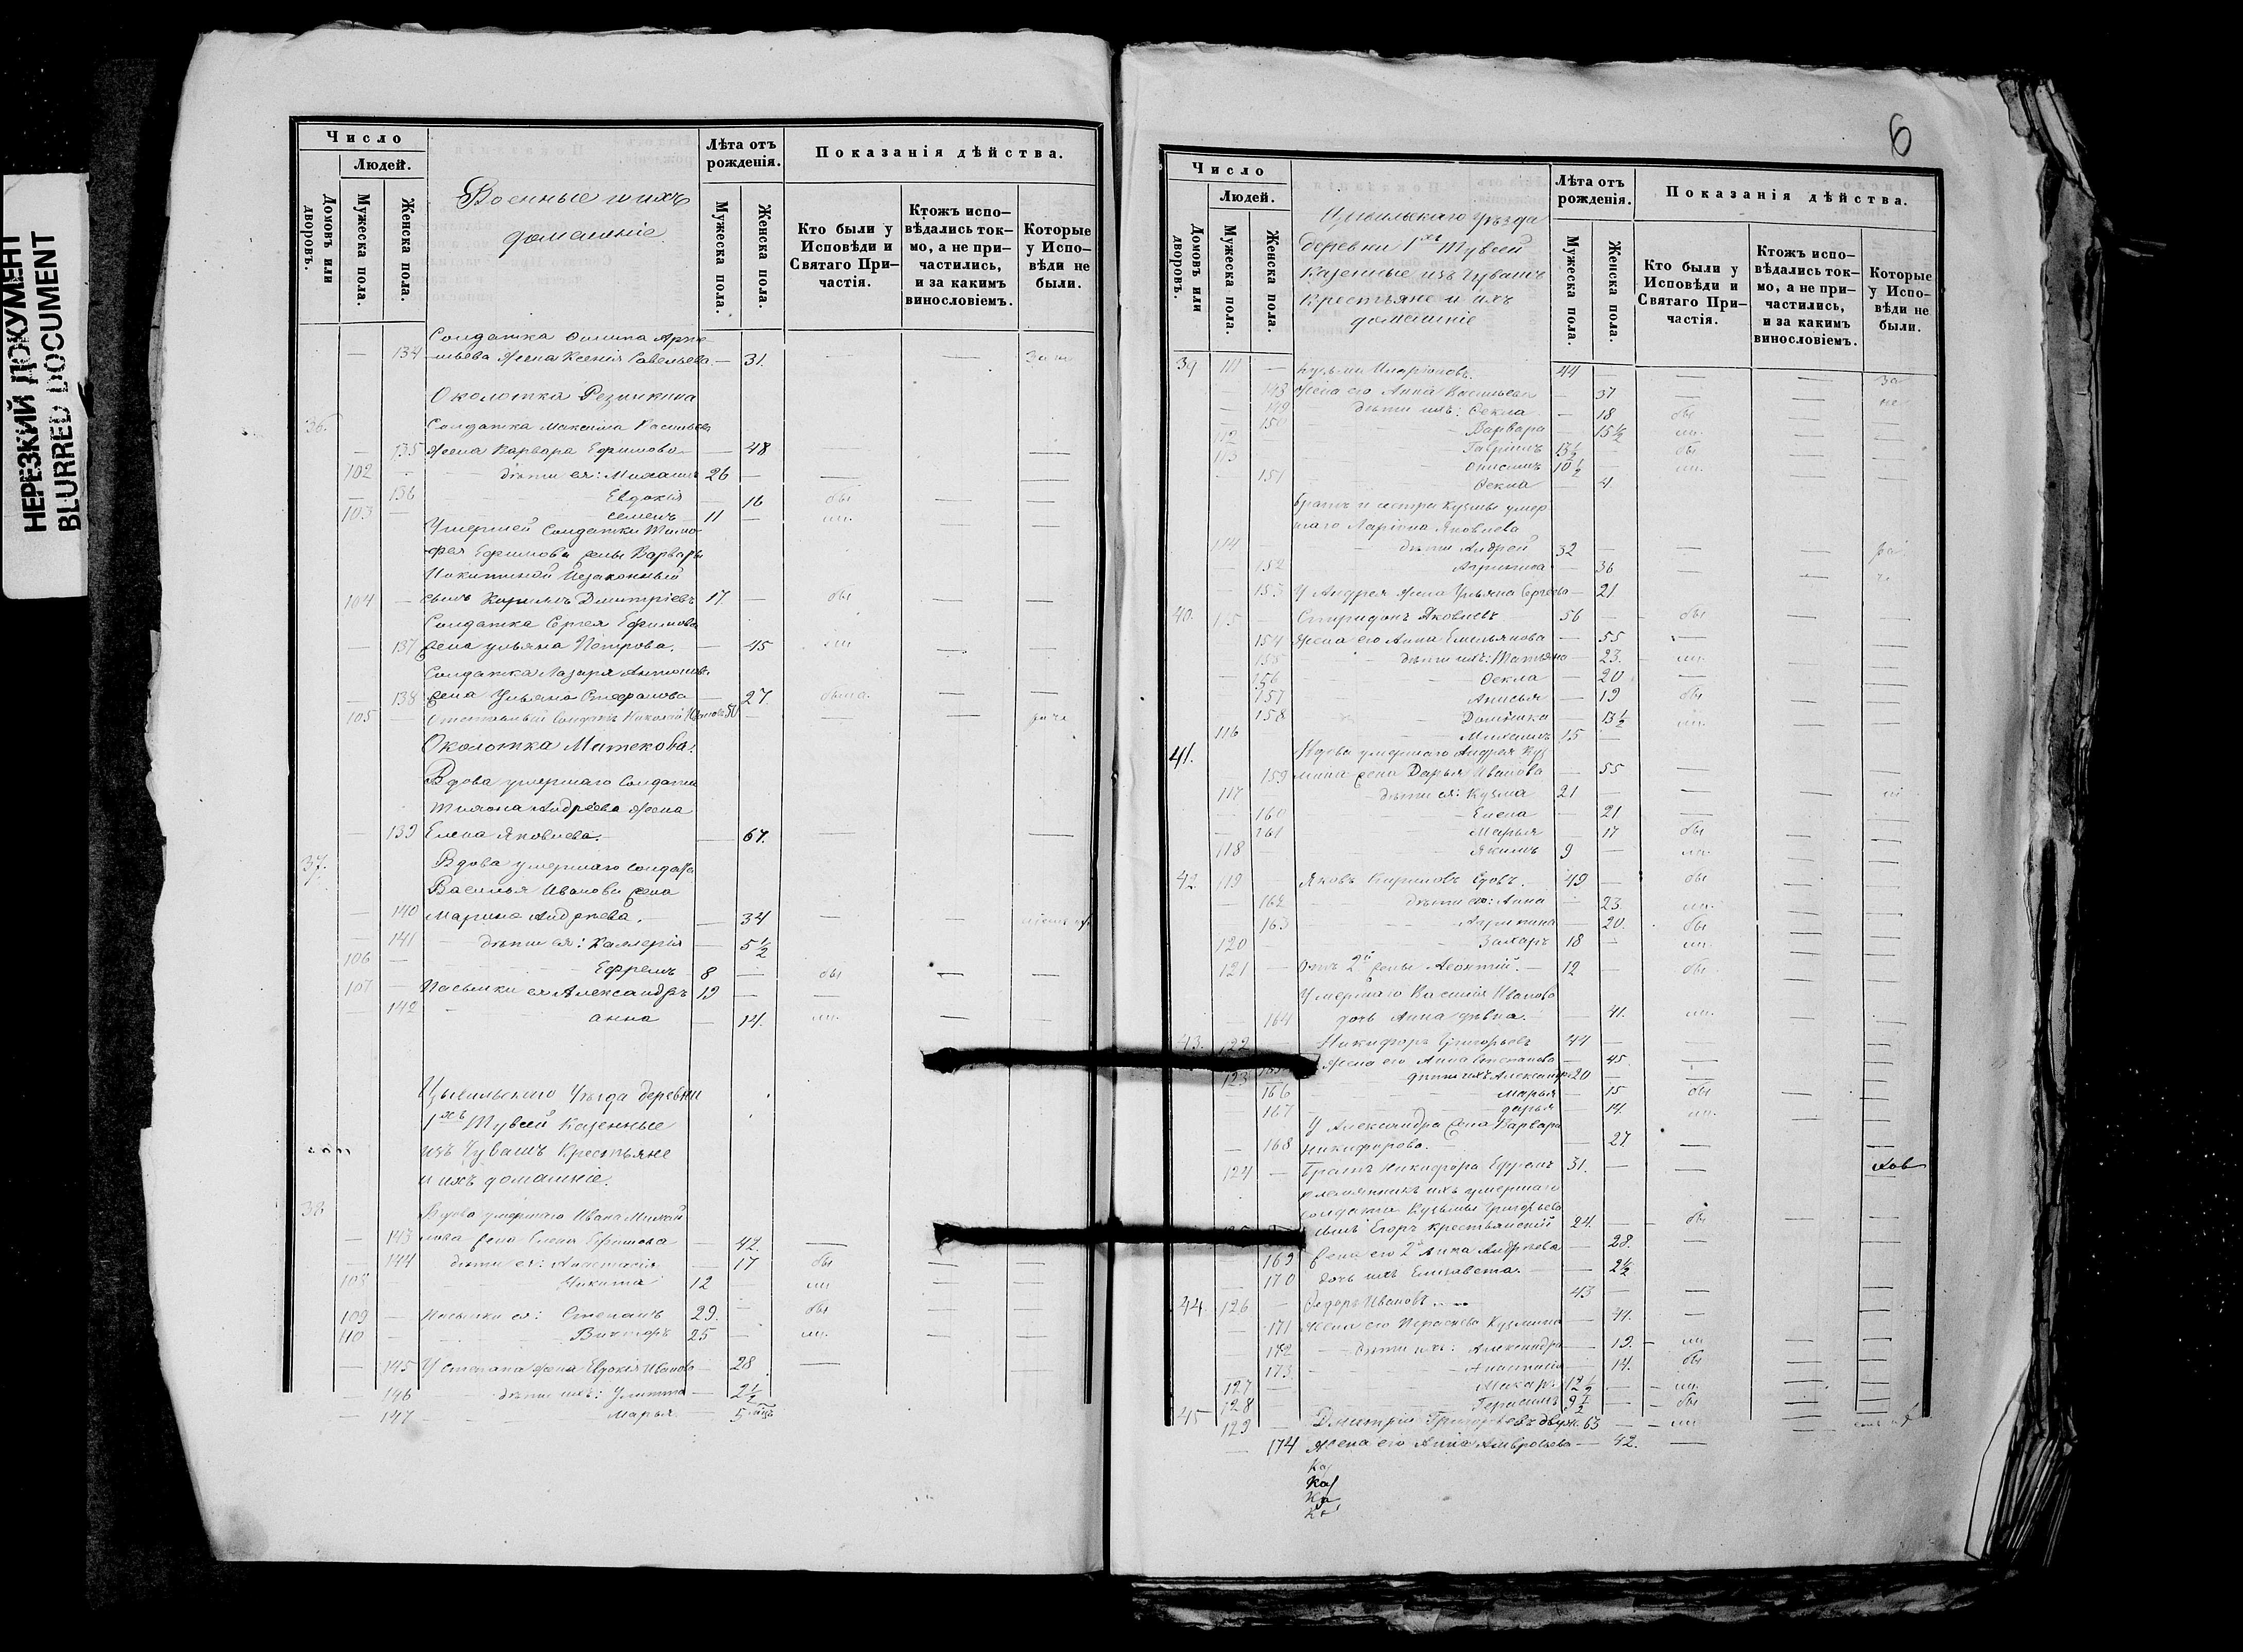 НЕРЕЗКИЙ ДОКУМЕНТ
BLURRED DOCUMENT
Число
Людей.
Домовъ или дворовъ.
Мужеска пола.
Женска пола.
Военные и ихъ
домашніе.
Лѣта отъ рожденія.
Мужеска пола.
Женска пола.
Показанія дѣйства.
Кто были у Исповѣди и Святаго При-частія.
Ктожъ испо-вѣдались ток-мо, а не при-частились, и за какимъ винословіемъ.
Которые у Испо-вѣди не были.
Солдатка
134 жена Ксенія Савельева — 31.
Околотка
36. Солдатка Максима Васильева
— 135 жена Варвара Ефимова — 48 — —
102 — дѣти ея: Михаилъ 26 — — —
— 136 Евдокія — 16 бы — —
103 — Семенъ 11 — ли. —
Умершей Солдатки Тимо-
фея Ефимова жены Варвары
Никитиной Незаконный
104 — сынъ Кириллъ Дмитріевъ 17. — бы — —
Солдатка Сергея Ефимова
— 137 жена Ульяна Петрова. — 45 ли — —
Солдатка Лазаря Антонова
— 138 жена Ульяна Стефанова — 27. была. — —
105 — Отставный Солдатъ Николай 50 — — —
Околотка Митекова.
Вдова умершаго Солдата
Тихона Андреева жена
— 139 Елена Яковлева. — 67. — —
37. Вдова умершаго солдата
Василья Иванова жена
— 140 Марина Андреева. — 34 — —
— 141 дѣти ея: Валлерія — 5 ½
106 — Ефремъ 8 — бы — —
107 — Пасынки ея Александръ 19 — —
— 142 анна — 14. ли. — —
Цывильскаго Уѣзда деревни
1хъ Тувсей Казенные
изъ Чувашъ Крестьяне
и ихъ домашніе.
38 Вдова умершаго Ивана Михай
— 143 лова жена Елена Ефимова — 42. —
— 144 дѣти ея: Анастасія — 17 бы — —
108 Никита 12 ли — —
109 — Пасынки ея: Степанъ 29. — бы — —
110 — Викторъ 25 — ли. — —
— 145 У Степана жена Евдокія Иванова — 28 —
— 146 дѣти ихъ: Улитта — 2 ½
— 147 Марья. 5 мцъ
6
Число
Людей.
Домовъ или дворовъ.
Мужеска пола.
Женска пола.
Цывильскаго Уѣзда
деревни 1хъ Тувсей
Казенные изъ Чувашъ
Крестьяне и ихъ
домашніе
Лѣта отъ рожденія.
Мужеска пола.
Женска пола.
Показанія дѣйства.
Кто были у Исповѣди и Святаго При-частія.
Ктожъ испо-вѣдались ток-мо, а не при-частились, и за какимъ винословіемъ.
Которые у Испо-вѣди не были.
39 111 — Кузьма Иларіоновъ. 44 — — —
— 148 жена его Анна Васильева — 37 — —
— 149 дѣти ихъ: Фекла — 18 бы —
— 150 Варвара — 15 ½ ли. —
112 Гавріилъ 13 ½ — бы —
113 Онисимъ 10 ½ — ли. —
151 Фекла — 4.
Братъ и сестра Кузьмы умер
шаго Ларіона Яковлева
114 дѣти Андрей 32 — — —
— 152 Агрипина — 36 —
— 153 У Андрея жена Ульяна Сергеева — 21
40. 115 Спиридонъ Яковлевъ 56 — бы — —
154 жена его Анна Емельянова — 55 —
155 дѣти ихъ: Татьяна — 23. ли.
156 Фекла — 20 —
157 Анисья — 19 бы
158 Домника — 13 ½ ли.
116 Михаилъ 15 —
41. Вдова умершаго Андрея Куз
— 159 мина жена Дарья Иванова — 55 —
117 — дѣти ея: Кузма 21 — — —
— 160 Елена — 21
— 161 Марья — 17 бы
118 — Якимъ 9 — ли.
42. 119 Яковъ Кириловъ вдовъ. — 49 — бы
— 162 дѣти его: Анна — 23. ли.
163 Агрипина — 20. бы
120 — Захаръ 18 — ли.
121 — Отъ 2й жены Леонтій. — 12 — бы
Умершаго Василія Иванова
— 164 дочь Анна дѣвка. — 41. ли.
43. 122 — Никифоръ Григорьевъ 44 — —
жена его Анна Степанова — 45. —
123 дѣти ихъ Александръ 20 — —
— 166 Марья — 15 бы
167 Дарья — 14. ли.
У Александра жена Варвара
— 168 Никифорова. — 27 —
124 — Братъ Никифора Ефремъ 31. — —
племянникъ ихъ умершаго
солдата Кузьмы Григорьева
сынъ Егоръ крестьянскій 24. — бы — —
169 жена его 2я Анна Андреева — 28. —
— 170 дочь ихъ Елизавета. — 2 ½
44. 126 — Федоръ Ивановъ 43 — —
— 171 жена его Парасковья Кузмина — 41. —
— 172 дѣти ихъ: Александра — 19. ли
173. Анастасія — 14. бы
127 — Макаръ 12 ½ — ли.
128 Герасимъ 9 ½ — бы
45 129 Дмитрій Григорьевъ 63 — ли
— 174 жена его Анна Амвросьева — 42. —
Ка
Ка
Ка
Ка